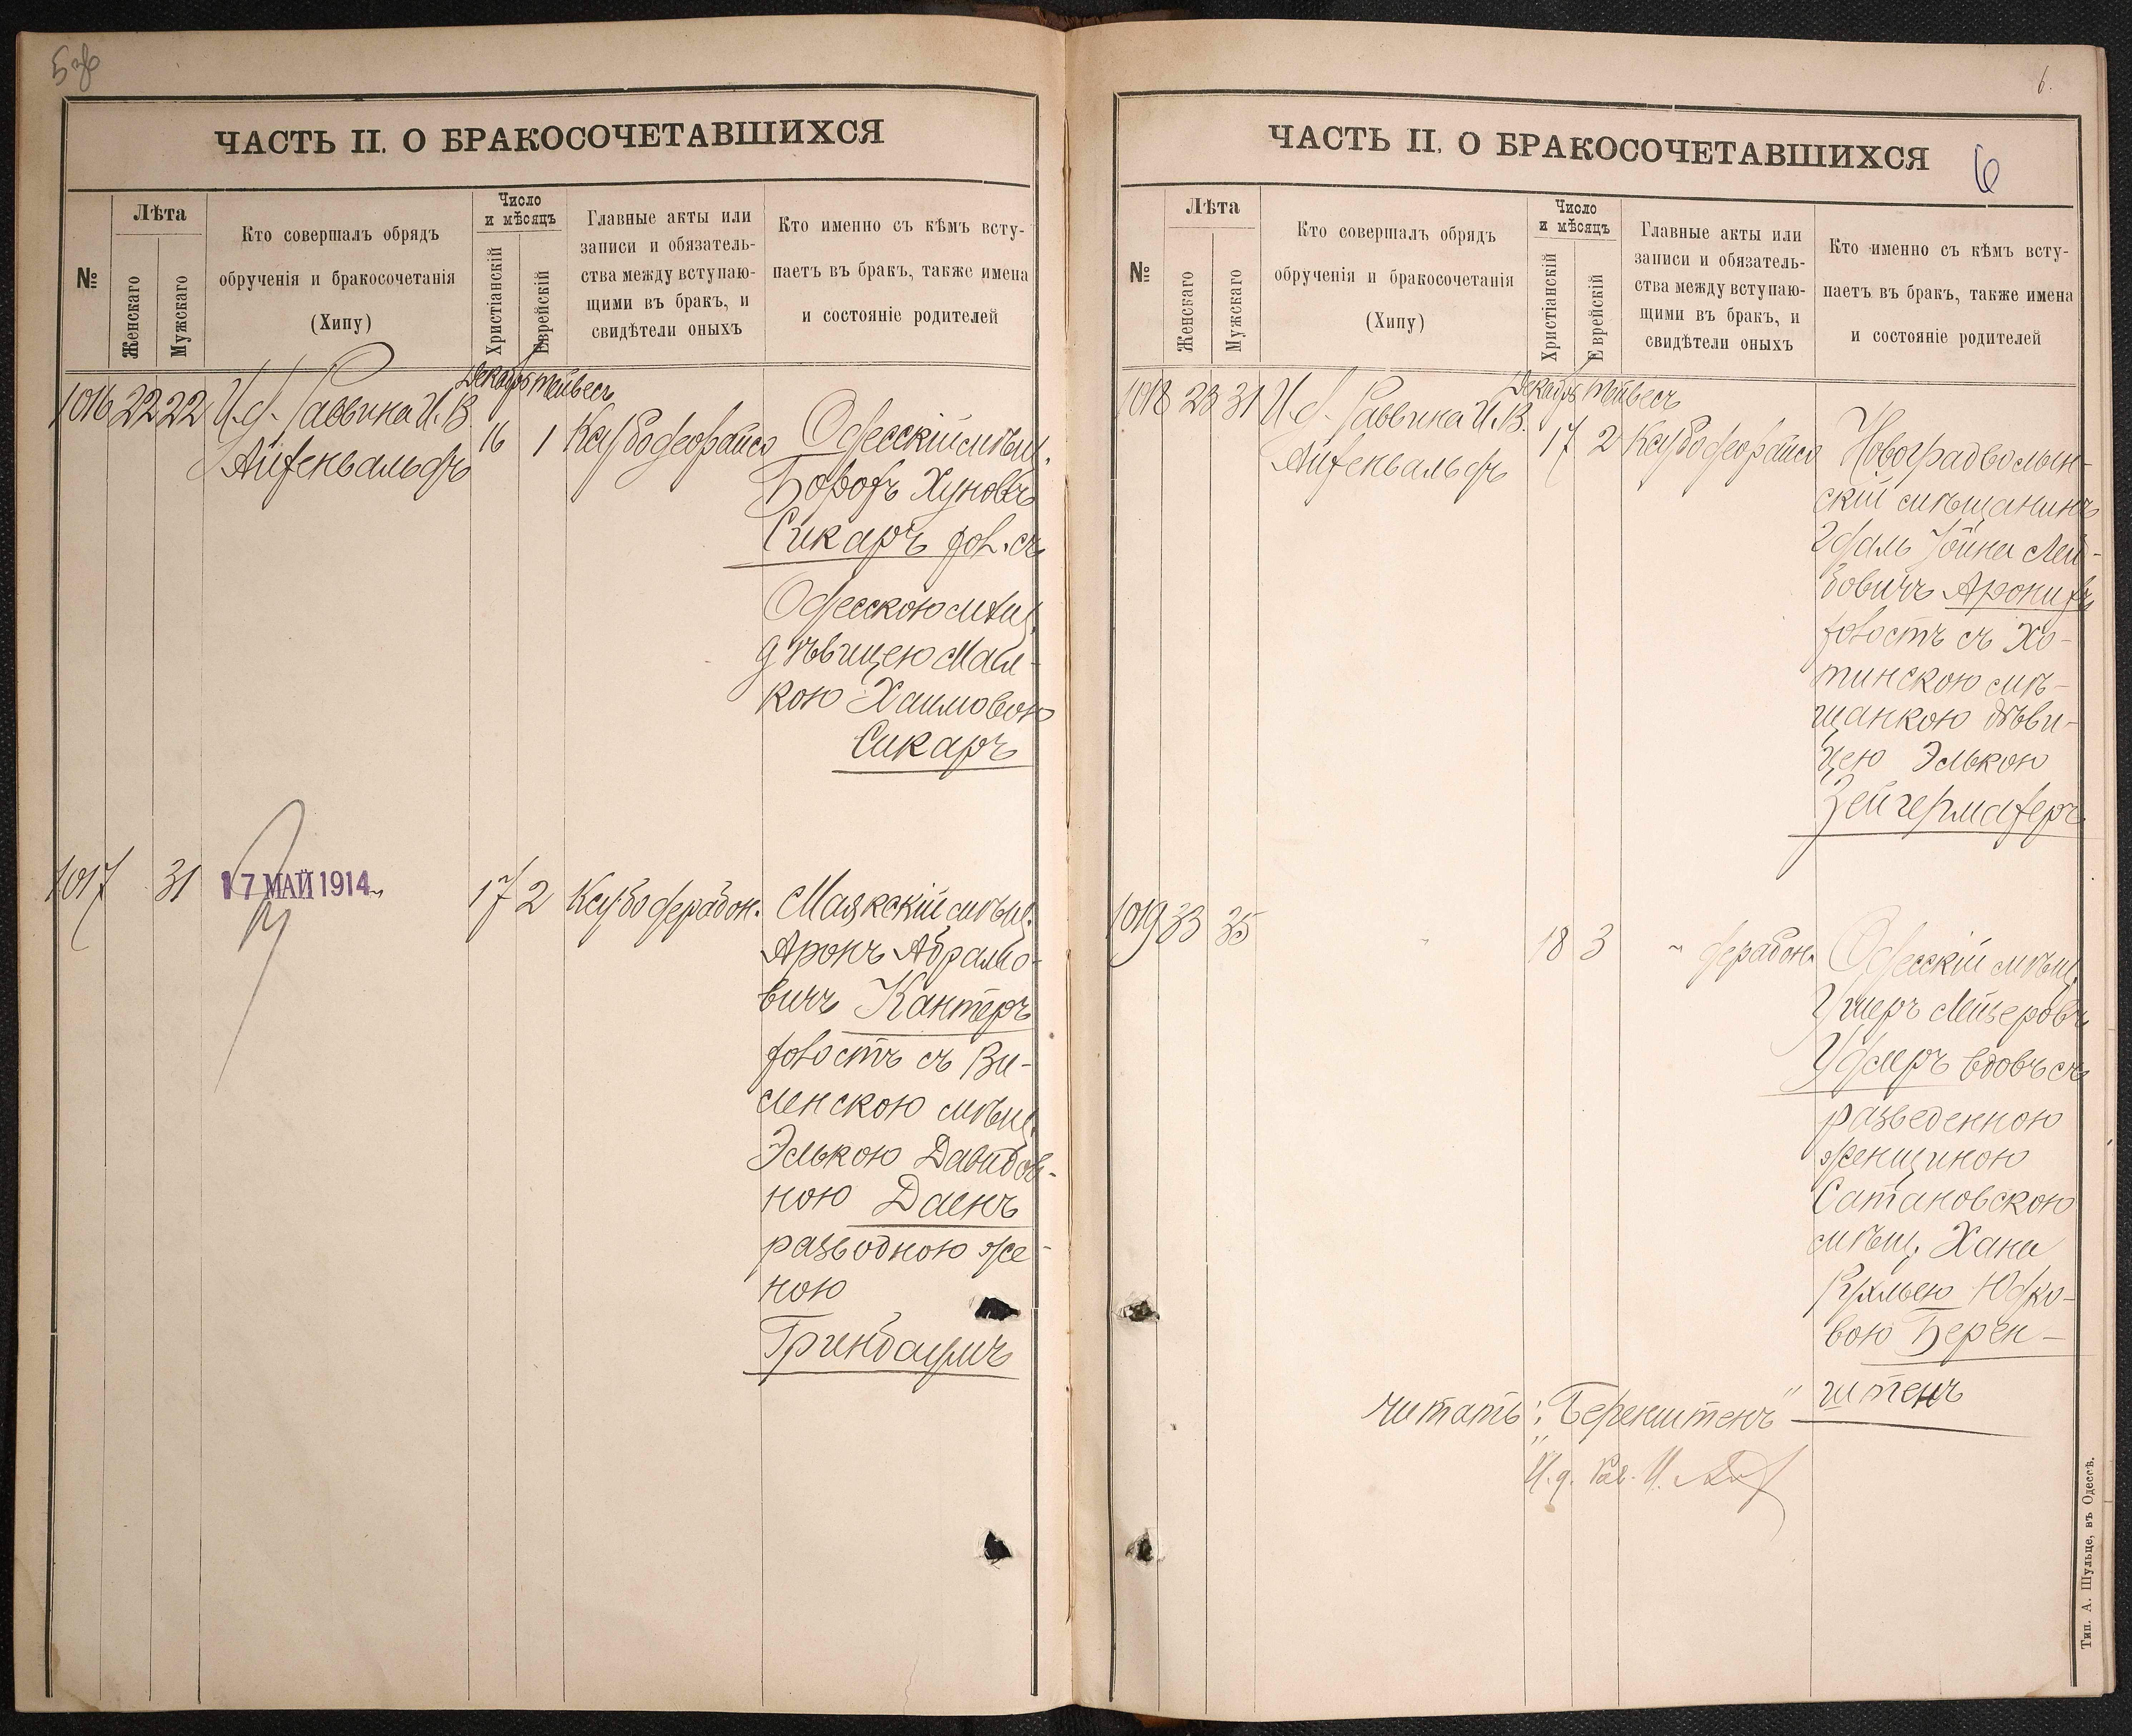 ЧАСТЬ II. О БРАКОСОЧЕТАВШИХСЯ
№
Лѣта
Женскаго
Мужскаго
Кто совершалъ обрядъ
обрученія и бракосочетанія
(Хипу)
Число
и мѣсяцъ
Христіанскій
Еврейскій
Главные акты или
записи и обязатель-
ства между вступаю-
щими въ бракъ, и
свидѣтели оныхъ
Кто именно съ кѣмъ всту-
паетъ въ бракъ, также имена
и состояніе родителей
1016 22 22 И.д. Раввина И.В.
Айзенвальдъ
Декабрь Тейвесъ
16 1
Одесскій мѣщ.
Хуновъ
Сикаръ хол. съ
Одесскою мѣщ.
дѣвицею Мал-
кою Хаимовою
Сикаръ
1017 31
17 МАЙ 1914
17 2
Маякскій мѣщ.
Аронъ Абрамо-
вичъ Кантеръ
холостъ съ Ви-
ленскою мѣщ.
Элькою Давидов-
ною Даенъ
разводною же-
ною
Гринбаумъ
6.
ЧАСТЬ II. О БРАКОСОЧЕТАВШИХСЯ
6
№
Лѣта
Женскаго
Мужскаго
Кто совершалъ обрядъ
обрученія и бракосочетанія
(Хипу)
Число
и мѣсяцъ
Христіанскій
Еврейскій
Главные акты или
записи и обязатель-
ства между вступаю-
щими въ бракъ, и
свидѣтели оныхъ
Кто именно съ кѣмъ всту-
паетъ въ бракъ, также имена
и состояніе родителей
1018 23 31 И.д. Раввина И.В.
Айзенвальдъ
Декабрь Тейвесъ
17 2
Новоградволын-
скій мѣщанинъ
Іойна Лей-
бовичъ
холостъ съ Хо-
тинскою мѣ-
щанкою дѣви-
цею Элькою
Зейгермахеръ
1019 33 35
18 3
Одесскій мѣщ.
Ушеръ Мейеровъ
вдовъ съ
разведенною
женщиною
Сатановскою
мѣщ. Хана
Рухлею Юдко-
вою Берен-
штенъ
читать: "Беренштенъ"
И.д. Рав. И.
Тип. А. Шульце, въ Одессѣ.